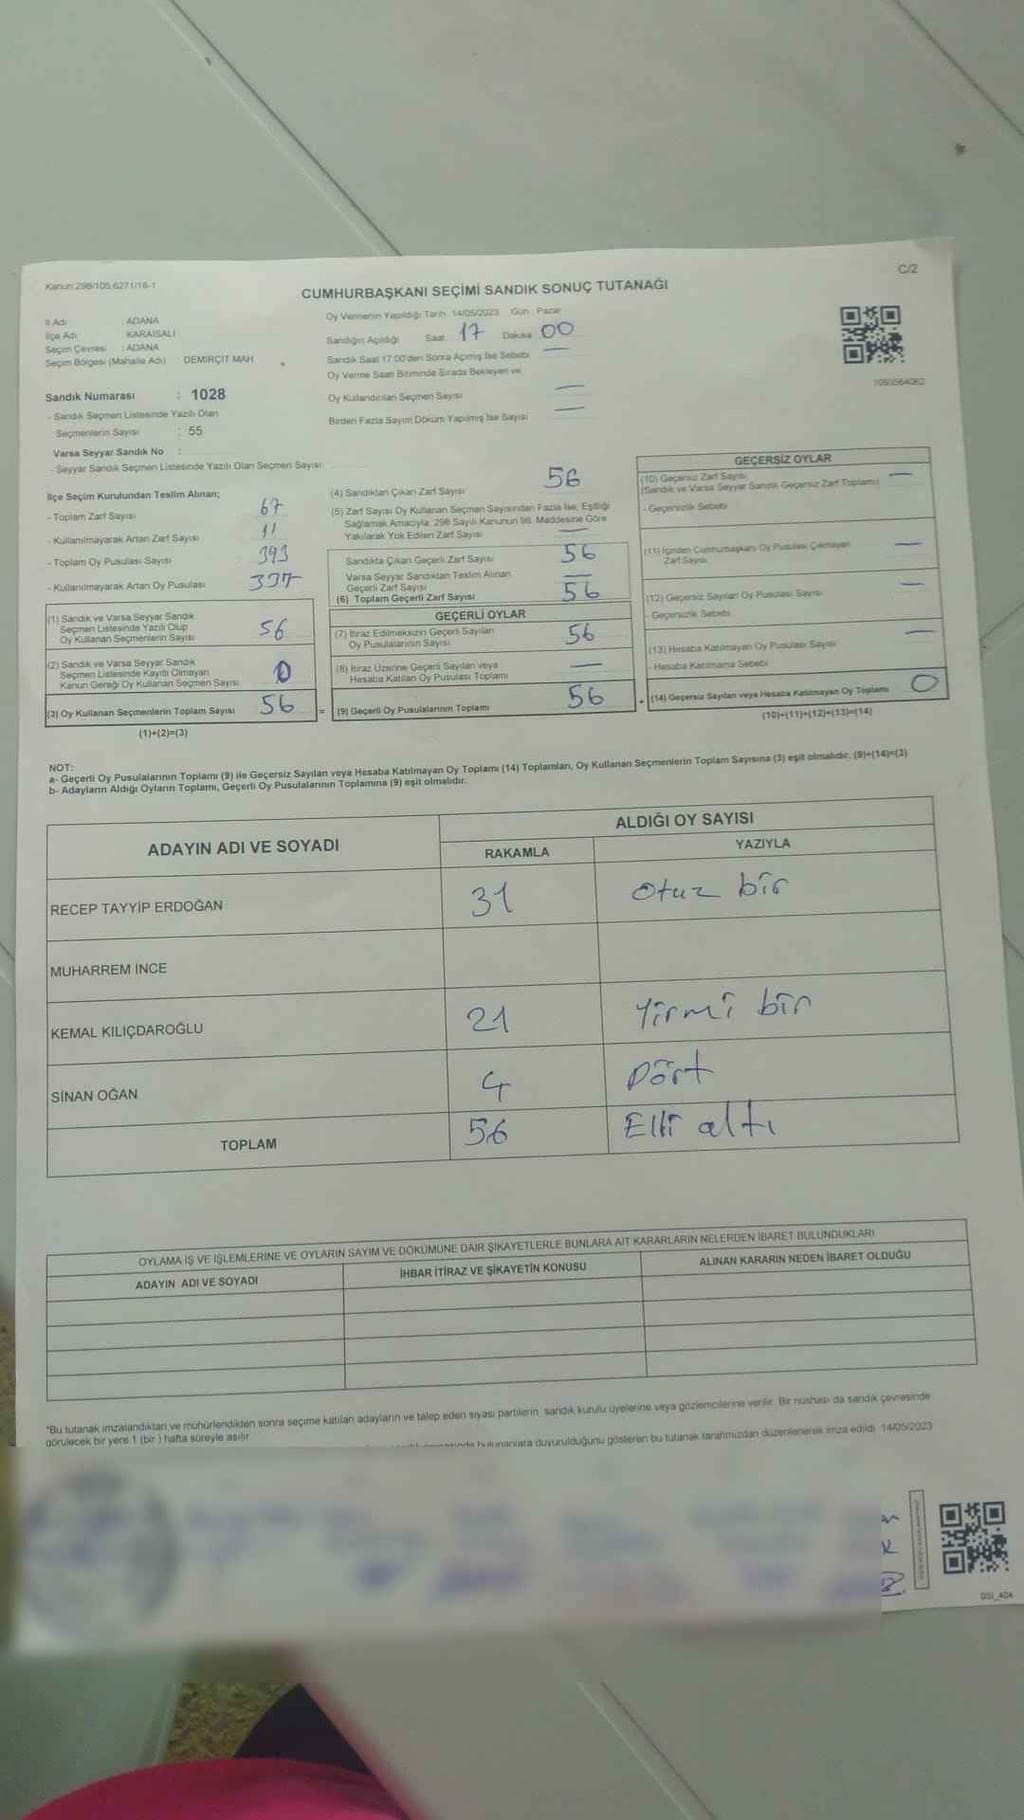 Kanun:298/105,6271/18-1
C/2
CUMHURBAŞKANI SEÇİMİ SANDIK SONUÇ TUTANAĞI
İl Adı : ADANA
İlçe Adı : KARAİSALI
Seçim Çevresi : ADANA
Seçim Bölgesi (Mahalle Adı) DEMİRÇİT MAH.
Sandık Numarası : 1028
- Sandık Seçmen Listesinde Yazılı Olan
Seçmenlerin Sayısı : 55
Varsa Seyyar Sandık No :
- Seyyar Sandık Seçmen Listesinde Yazılı Olan Seçmen Sayısı
Oy Vermenin Yapıldığı Tarih: 14/05/2023 Gün: Pazar
Sandığın Açıldığı Saat 17 Dakika 00
Sandık Saat 17:00'den Sonra Açmış İse Sebebi —
Oy Verme Saati Bitiminde Sırada Bekleyen ve
Oy Kullandırılan Seçmen Sayısı —
Birden Fazla Sayım Döküm Yapılmış İse Sayısı —
1060564062
İlçe Seçim Kurulundan Teslim Alınan;
- Toplam Zarf Sayısı 67
- Kullanılmayarak Artan Zarf Sayısı 11
- Toplam Oy Pusulası Sayısı 393
- Kullanılmayarak Artan Oy Pusulası 337
(1) Sandık ve Varsa Seyyar Sandık
Seçmen Listesinde Yazılı Olup
Oy Kullanan Seçmenlerin Sayısı 56
(2) Sandık ve Varsa Seyyar Sandık
Seçmen Listesinde Kayıtlı Olmayan
Kanun Gereği Oy Kullanan Seçmen Sayısı 0
(3) Oy Kullanan Seçmenlerin Toplam Sayısı 56
(1)+(2)=(3)
(4) Sandıktan Çıkan Zarf Sayısı 56
(5) Zarf Sayısı Oy Kullanan Seçmen Sayısından Fazla İse, Eşitliği
Sağlamak Amacıyla, 298 Sayılı Kanunun 98. Maddesine Göre
Yakılarak Yok Edilen Zarf Sayısı —
Sandıkta Çıkan Geçerli Zarf Sayısı 56
Varsa Seyyar Sandıktan Teslim Alınan
Geçerli Zarf Sayısı —
(6) Toplam Geçerli Zarf Sayısı 56
GEÇERLİ OYLAR
(7) İtiraz Edilmeksizin Geçerli Sayılan
Oy Pusulalarının Sayısı 56
(8) İtiraz Üzerine Geçerli Sayılan veya
Hesaba Katılan Oy Pusulası Toplamı —
= (9) Geçerli Oy Pusulalarının Toplamı 56
GEÇERSİZ OYLAR
(10) Geçersiz Zarf Sayısı —
(Sandık ve Varsa Seyyar Sandık Geçersiz Zarf Toplamı)
- Geçersizlik Sebebi
(11) İçinden Cumhurbaşkanı Oy Pusulası Çıkmayan
Zarf Sayısı —
(12) Geçersiz Sayılan Oy Pusulası Sayısı —
- Geçersizlik Sebebi
(13) Hesaba Katılmayan Oy Pusulası Sayısı —
- Hesaba Katılmama Sebebi
+ (14) Geçersiz Sayılan veya Hesaba Katılmayan Oy Toplamı 0
(10)+(11)+(12)+(13)=(14)
NOT:
a- Geçerli Oy Pusulalarının Toplamı (9) ile Geçersiz Sayılan veya Hesaba Katılmayan Oy Toplamı (14) Toplamları, Oy Kullanan Seçmenlerin Toplam Sayısına (3) eşit olmalıdır. (9)+(14)=(3)
b- Adayların Aldığı Oyların Toplamı, Geçerli Oy Pusulalarının Toplamına (9) eşit olmalıdır.
ADAYIN ADI VE SOYADI
ALDIĞI OY SAYISI
RAKAMLA YAZIYLA
RECEP TAYYİP ERDOĞAN 31 Otuz bir
MUHARREM İNCE
KEMAL KILIÇDAROĞLU 21 Yirmi bir
SİNAN OĞAN 4 Dört
TOPLAM 56 Elli altı
OYLAMA İŞ VE İŞLEMLERİNE VE OYLARIN SAYIM VE DÖKÜMÜNE DAİR ŞİKAYETLERLE BUNLARA AİT KARARLARIN NELERDEN İBARET BULUNDUKLARI
ADAYIN ADI VE SOYADI İHBAR İTİRAZ VE ŞİKAYETİN KONUSU ALINAN KARARIN NEDEN İBARET OLDUĞU
*Bu tutanak imzalandıktan ve mühürlendikten sonra seçime katılan adayların ve talep eden siyasi partilerin sandık kurulu üyelerine veya gözlemcilerine verilir. Bir nüshası da sandık çevresinde
görülecek bir yere 1 (bir) hafta süreyle asılır.
bulunanlara duyurulduğunu gösteren bu tutanak tarafımızdan düzenlenerek imza edildi. 14/05/2023